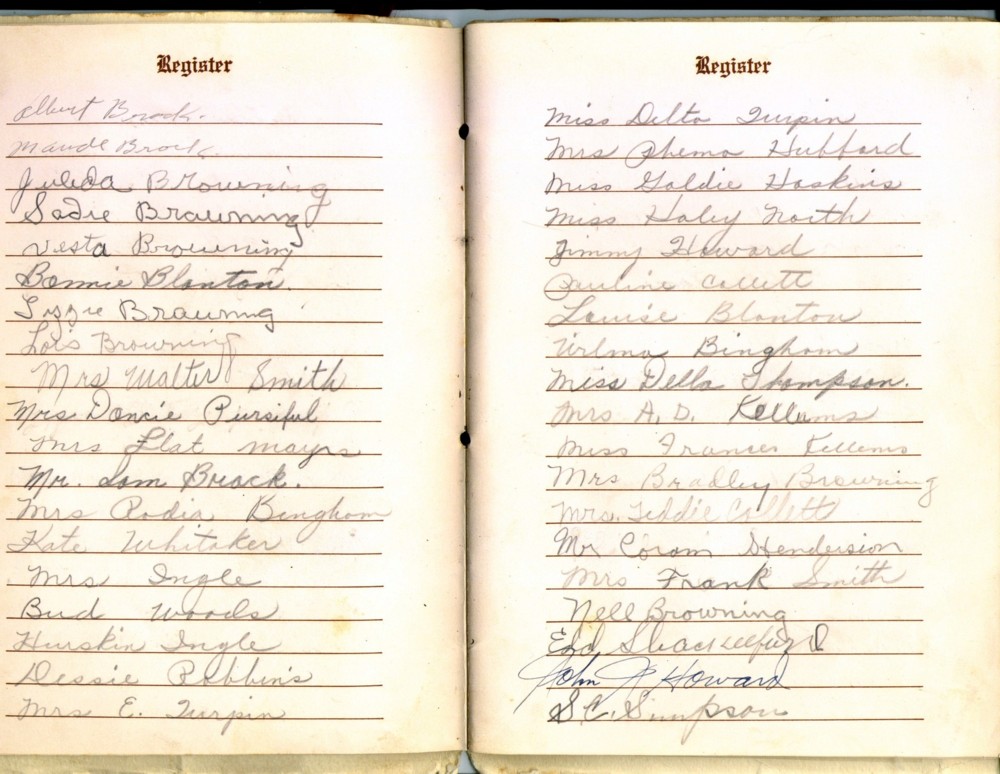 Register
Albert Brock.
Maude Brock.
Juleda Browning
Sadie Browning
Vesta Browning
Bonnie Blanton.
Lizzie Browning
Lois Browning
Mrs Walter Smith
Mrs Doncie Pursiful
Mrs Flat Mayes
Mr. Sam Brock.
Mrs Rodia Bingham
Kate Whitaker
Mrs Ingle
Bud Woods
Hurskin Ingle
Dessie Robbins
Mrs E. Turpin
Register
Miss Delta Turpin
Mrs Phema Hubbard
Miss Goldie Hoskins
Miss Haley North
Jimmy Howard
Pauline Collett
Louise Blanton
Wilma Bingham
Miss Della Thompson.
Mrs A. D. Kellums
Miss Frances Kellems
Mrs Bradley Browning
Mrs. Teddie Collett
Mr Coram Henderson
Mrs Frank Smith
Nell Browning
Edd Shackelford
John J Howard
S.C. Simpson